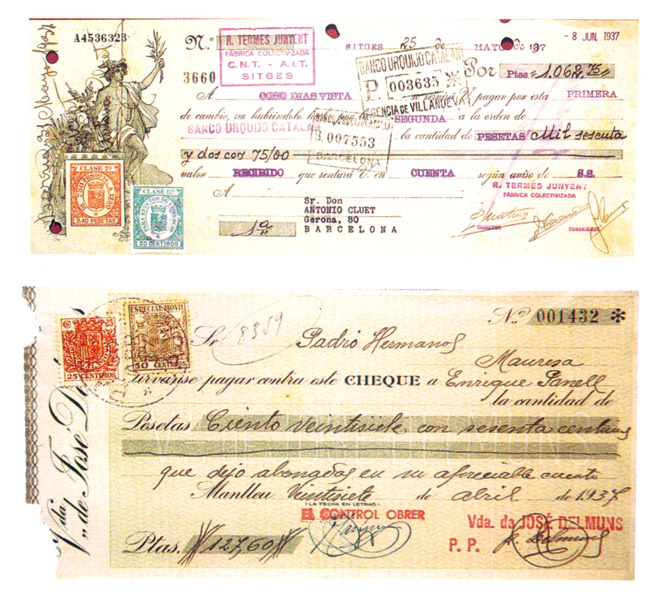 A4536323
N.º
R. TERMES JUNYENT
FÁBRICA COLECTIVIZADA
C.N.T. - A.I.T.
SITGES
SITGES 25 de MAYO de 197
- 8 JUN. 1937
3660
BANCO URQUIJO CATALAN
P. 003635 *
AGENCIA DE VILLANUEVA
Por Ptas = 1.062,75 =
A OCHO DIAS VISTA se servirá V. pagar por esta PRIMERA
de cambio, no habiéndolo hecho por la SEGUNDA a la orden de
BANCO URQUIJO CATALAN
B. 007553
BARCELONA
la cantidad de PESETAS Mil sesenta
y dos con 75/00
valor RECIBIDO que sentará V. en CUENTA según aviso de S.S.
R. TERMES JUNYENT
FÁBRICA COLECTIVIZADA
CLASE 7ª
2,40 PESETAS
CLASE 12ª
30 CENTIMOS
A
Sr. Don
ANTONIO CLUET
Gerona, 80
BARCELONA
1ª
DIRECTOR
N.º 001432 *
25 CENTIMOS
ESPECIAL MOVIL
10 CENTIMOS
8359
Sr Padró Hermanos
Manresa
Sirvanse pagar contra este CHEQUE a Enrique Panell
la cantidad de
Pesetas Ciento veintisiete con sesenta centimos
que dejo abonados en su apreciable cuenta
Manlleu Veintisiete de abril de 1937
(LA FECHA EN LETRAS)
EL CONTROL OBRER
Vda. da JOSÉ DELMUNS
P. P.
Ptas. 127,60
Vda de José De